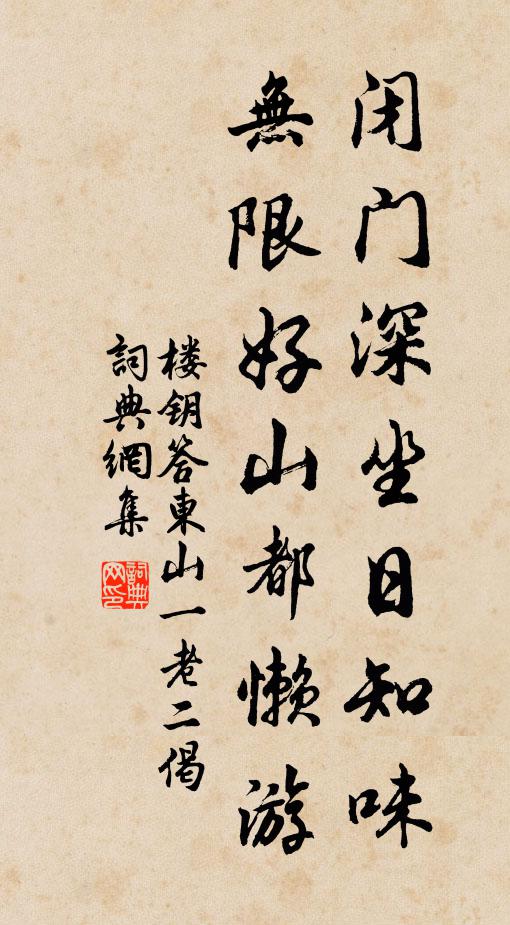 闭门深坐日知味
無限好山都懒游
楼钥答東山一老二偈
詞典網集
詞典网印